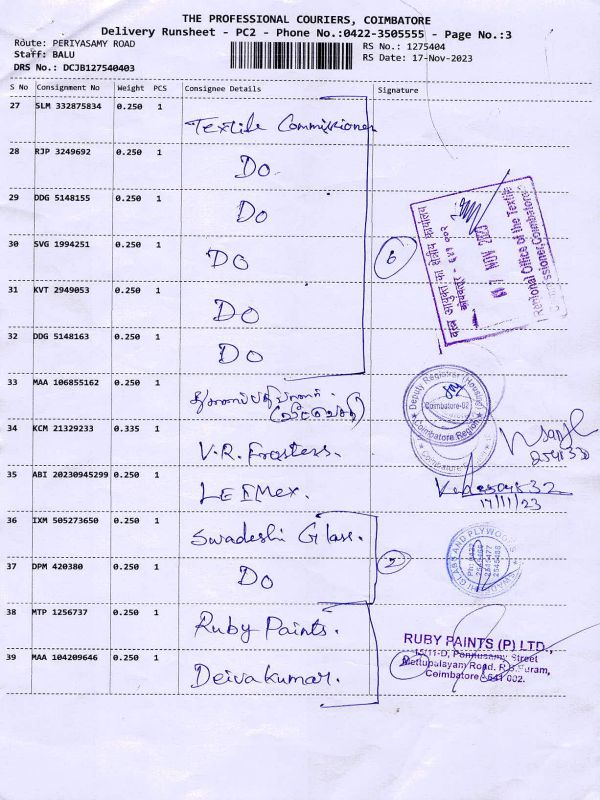 THE PROFESSIONAL COURIERS, COIMBATORE
Delivery Runsheet - PC2 - Phone No.:0422-3505555 - Page No.:3
Route: PERIYASAMY ROAD
RS No.: 1275404
Staff: BALU
RS Date: 17-Nov-2023
DRS No.: DCJB127540403
S No Consignment No Weight PCS Consignee Details Signature
27 SLM 332875834 0.250 1 Textile Commissioner
28 RJP 3249692 0.250 1 Do
29 DDG 5148155 0.250 1 Do
30 SVG 1994251 0.250 1 Do
6
31 KVT 2949053 0.250 1 Do
32 DDG 5148163 0.250 1 Do
17 NOV 2023
Regional Office of the Textile
Commissioner, Coimbatore
33 MAA 106855162 0.250 1
Deputy Registrar (Housing)
Coimbatore-02
Coimbatore Region
34 KCM 21329233 0.335 1 V.R. Frosters.
35 ABI 20230945299 0.250 1 LEEMex.
17/11/23
36 IXM 505273650 0.250 1 Swadeshi Glass.
37 DPM 420380 0.250 1 Do
2
GLASS AND PLYWOODS
38 MTP 1256737 0.250 1 Ruby Paints.
39 MAA 104209646 0.250 1 Deivakumar.
RUBY PAINTS (P) LTD.,
15/11-D, Ponnusamy Street
Mettupalayam Road, R.S.Puram,
Coimbatore - 641 002.